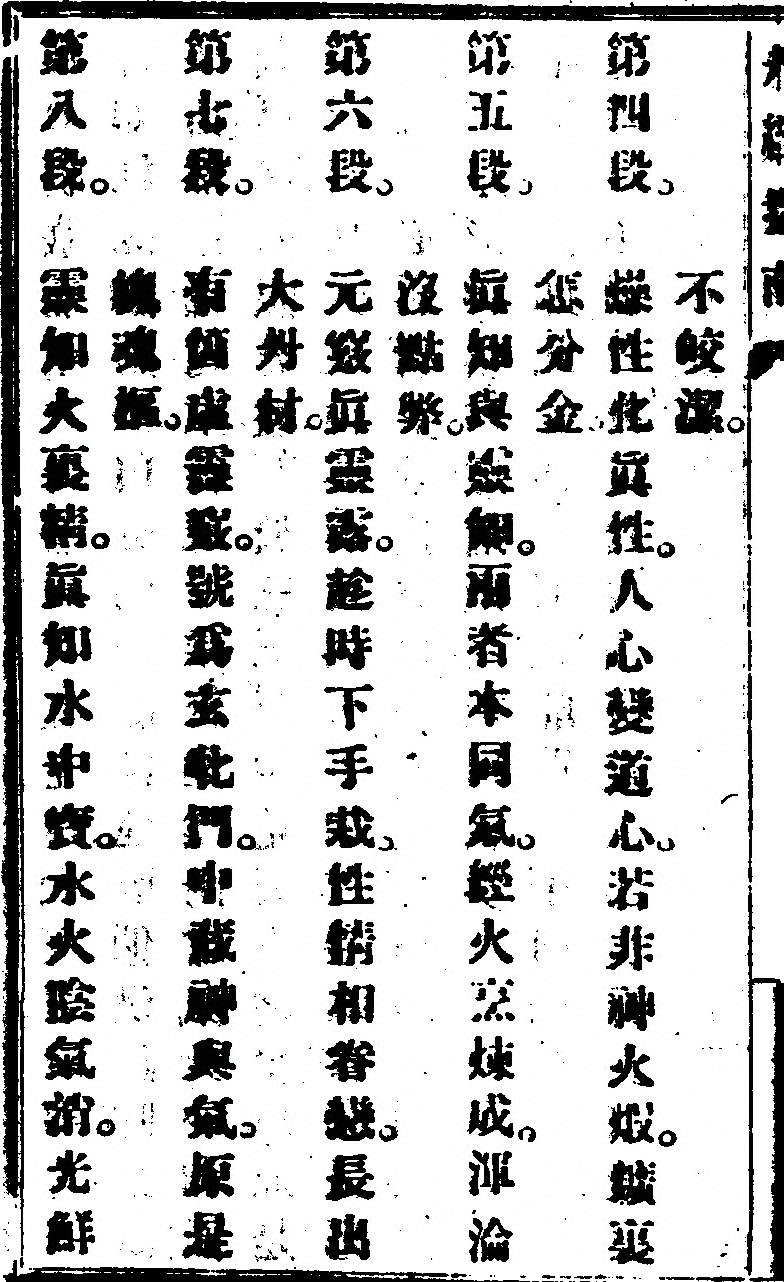 不皎潔。
第四段。燥性化眞性。人心變道心。若非神火煆。鑛裏
怎分金。
第五段。眞知與靈知。兩者本同氣。經火烹煉成。渾淪
沒點弊。
第六段。元竅眞靈露。趁時下手栽。性情相眷戀。長出
大丹材。
第七段。有箇虛靈竅。號爲玄牝門。中藏神與氣。原是
魄魂根。
第八段。靈如火裏精。眞如水中寶。水火陰氣消。光鮮